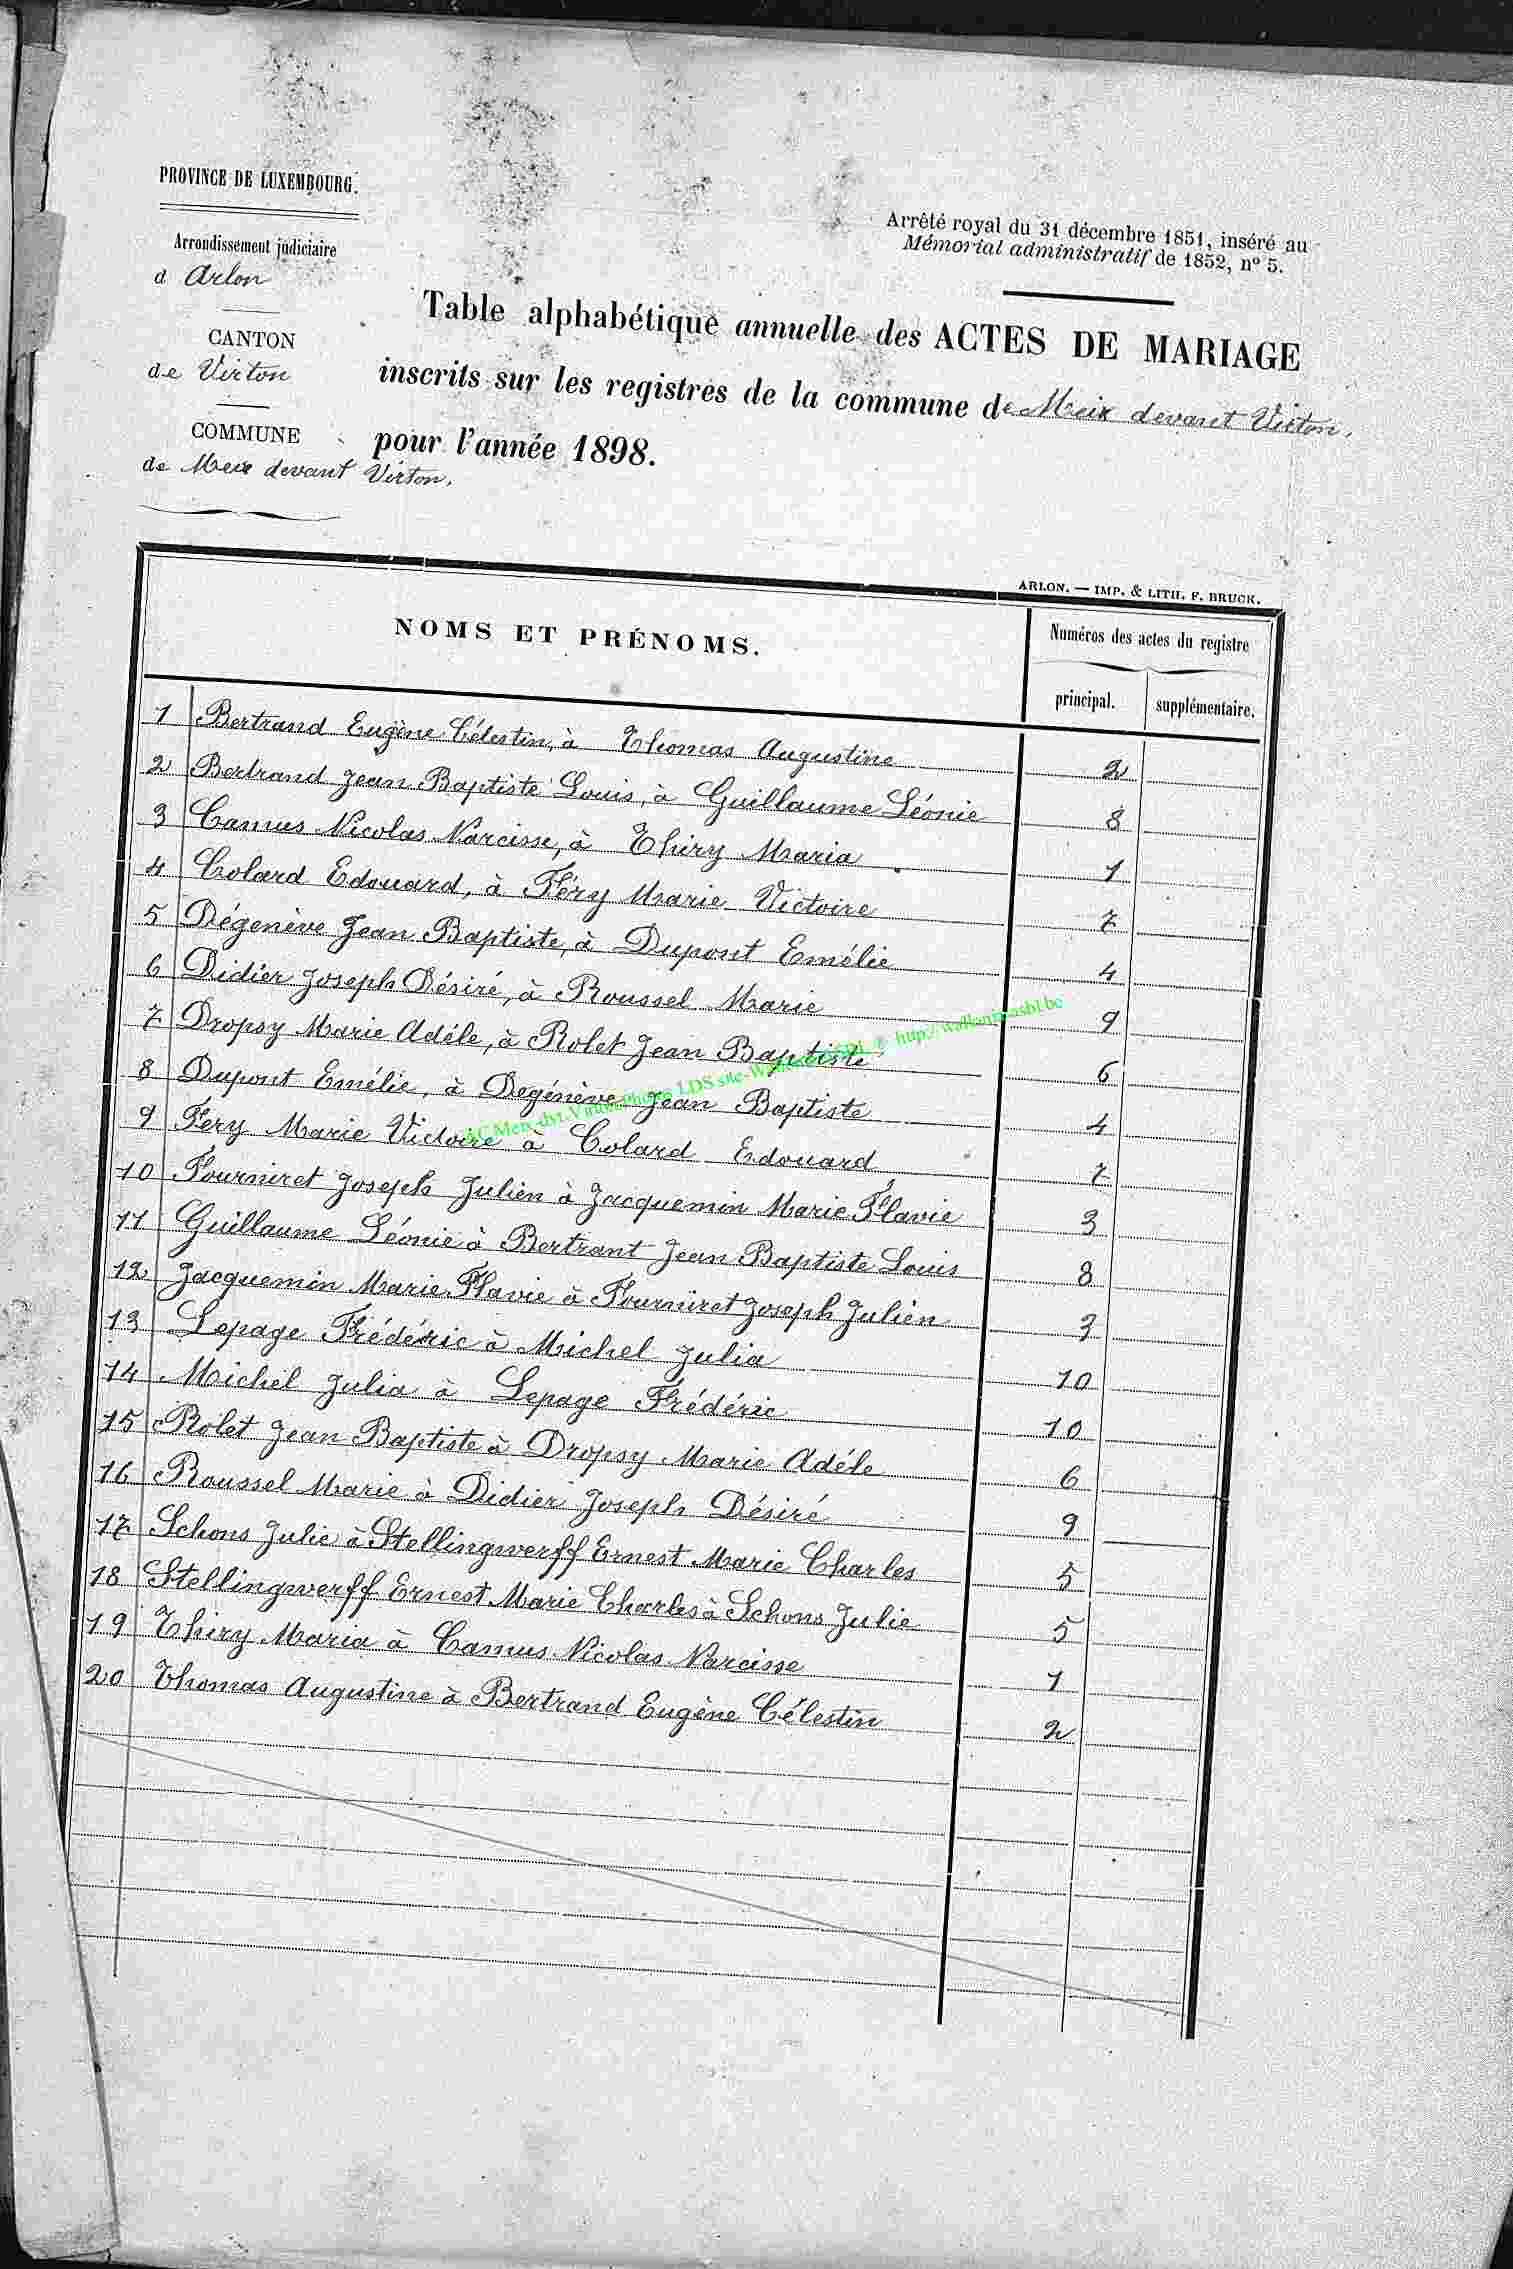 PROVINCE DE LUXEMBOURG.
Arrondissement judiciaire
d Arlon
CANTON
de Virton
COMMUNE
de Meix devant Virton.
Arrêté royal du 31 décembre 1851, inséré au
Mémorial administratif de 1852, nº 5.
Table alphabétique annuelle des ACTES DE MARIAGE
inscrits sur les registres de la commune de Meix devant Virton.
pour l'année 1898.
ARLON. — IMP. & LITH. F. BRUCK.
NOMS ET PRÉNOMS.
Numéros des actes du registre
principal. supplémentaire.
1 Bertrand Eugène Célestin, à Thomas Augustine 2
2 Bertrand Jean Baptiste Louis, à Guillaume Léonie 8
3 Camus Nicolas Narcisse, à Thiry Maria 1
4 Colard Edouard, à Féry Marie Victoire 7
5 Dégenève Jean Baptiste, à Dupont Emélie 4
6 Didier Joseph Désiré, à Roussel Marie 9
7 Dropsy Marie Adéle, à Rolet Jean Baptiste 6
8 Dupont Emélie, à Degénève Jean Baptiste 4
9 Fery Marie Victoire à Colard Edouard 7
10 Fourniret Joseph Julien à Jacquemin Marie Flavie 3
11 Guillaume Léonie à Bertrant Jean Baptiste Louis 8
12 Jacquemin Marie Flavie à Fourniret Joseph Julien 3
13 Lepage Frédéric à Michel Julia 10
14 Michel Julia à Lepage Frédéric 10
15 Rolet Jean Baptiste à Dropsy Marie Adéle 6
16 Roussel Marie à Didier Joseph Désiré 9
17 Schons Julie à Stellingwerff Ernest Marie Charles 5
18 Stellingwerff Ernest Marie Charles à Schons Julie 5
19 Thiry Maria à Camus Nicolas Narcisse 1
20 Thomas Augustine à Bertrand Eugène Célestin 2